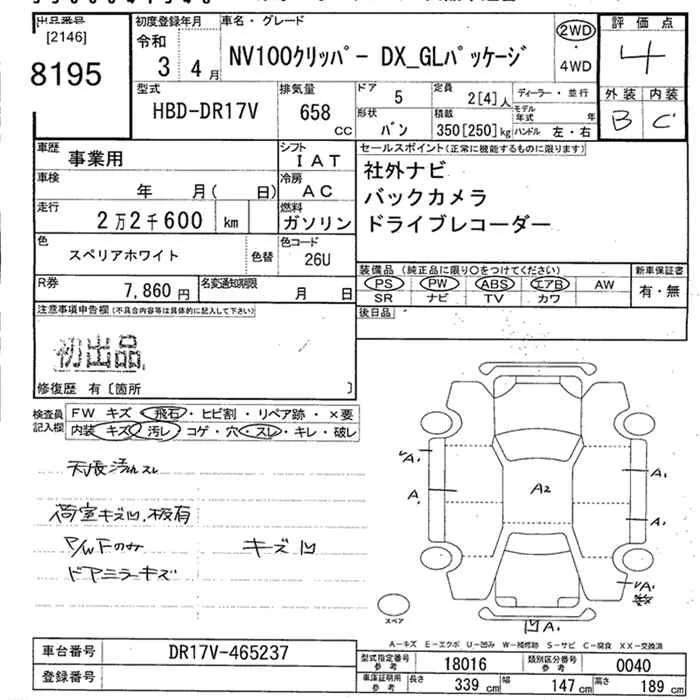 出品番号 初度登録年月 車名・グレード 評価点
[2146] 令和 2WD
8195 3 年 4月 NV100クリッパー DX_GLパッケージ ・4WD 4
型式 排気量 ドア 5 定員 2[4]人 ディーラー・並行 外装 内装
HBD-DR17V 658 CC 形状 バン 積載 350[250]kg モデル年式 年 ハンドル 左・右 B C
車歴 事業用 シフト IAT セールスポイント(正常に機能するものに限ります)
車検 年 月( 日) 冷房 AC 社外ナビ
走行 2万2千600 km 燃料 ガソリン バックカメラ
ドライブレコーダー
色 スペリアホワイト 色替 色コード 26U
装備品 (純正品に限り○をつけてください) 新車保証書
R券 7,860円 名変通知期限 月 日 PS PW ABS エアB AW 有・無
SR ナビ TV カワ
注意事項申告欄(不具合内容等は具体的に記入して下さい) 後日品
初出品
修復歴 有〔箇所 〕
検査員記入欄 FW キズ・飛石・ヒビ割・リペア跡・×要
内装 キズ・汚レ・コゲ・穴・スレ・キレ・破レ
天張汚れスレ
荷室キズ凹、板有
P/WFのみ キズ凹
ドアミラーキズ
A1 A1
A A2
A1
A1
凹A1
スペア
A-キズ E-エクボ U-凹み W-補修跡 S-サビ C-腐食 XX-交換済
車台番号 DR17V-465237 型式指定番号 参考 18016 類別区分番号 参考 0040
登録番号 車庫証明用 参考 長さ 339 cm 幅 147 cm 高さ 189 cm